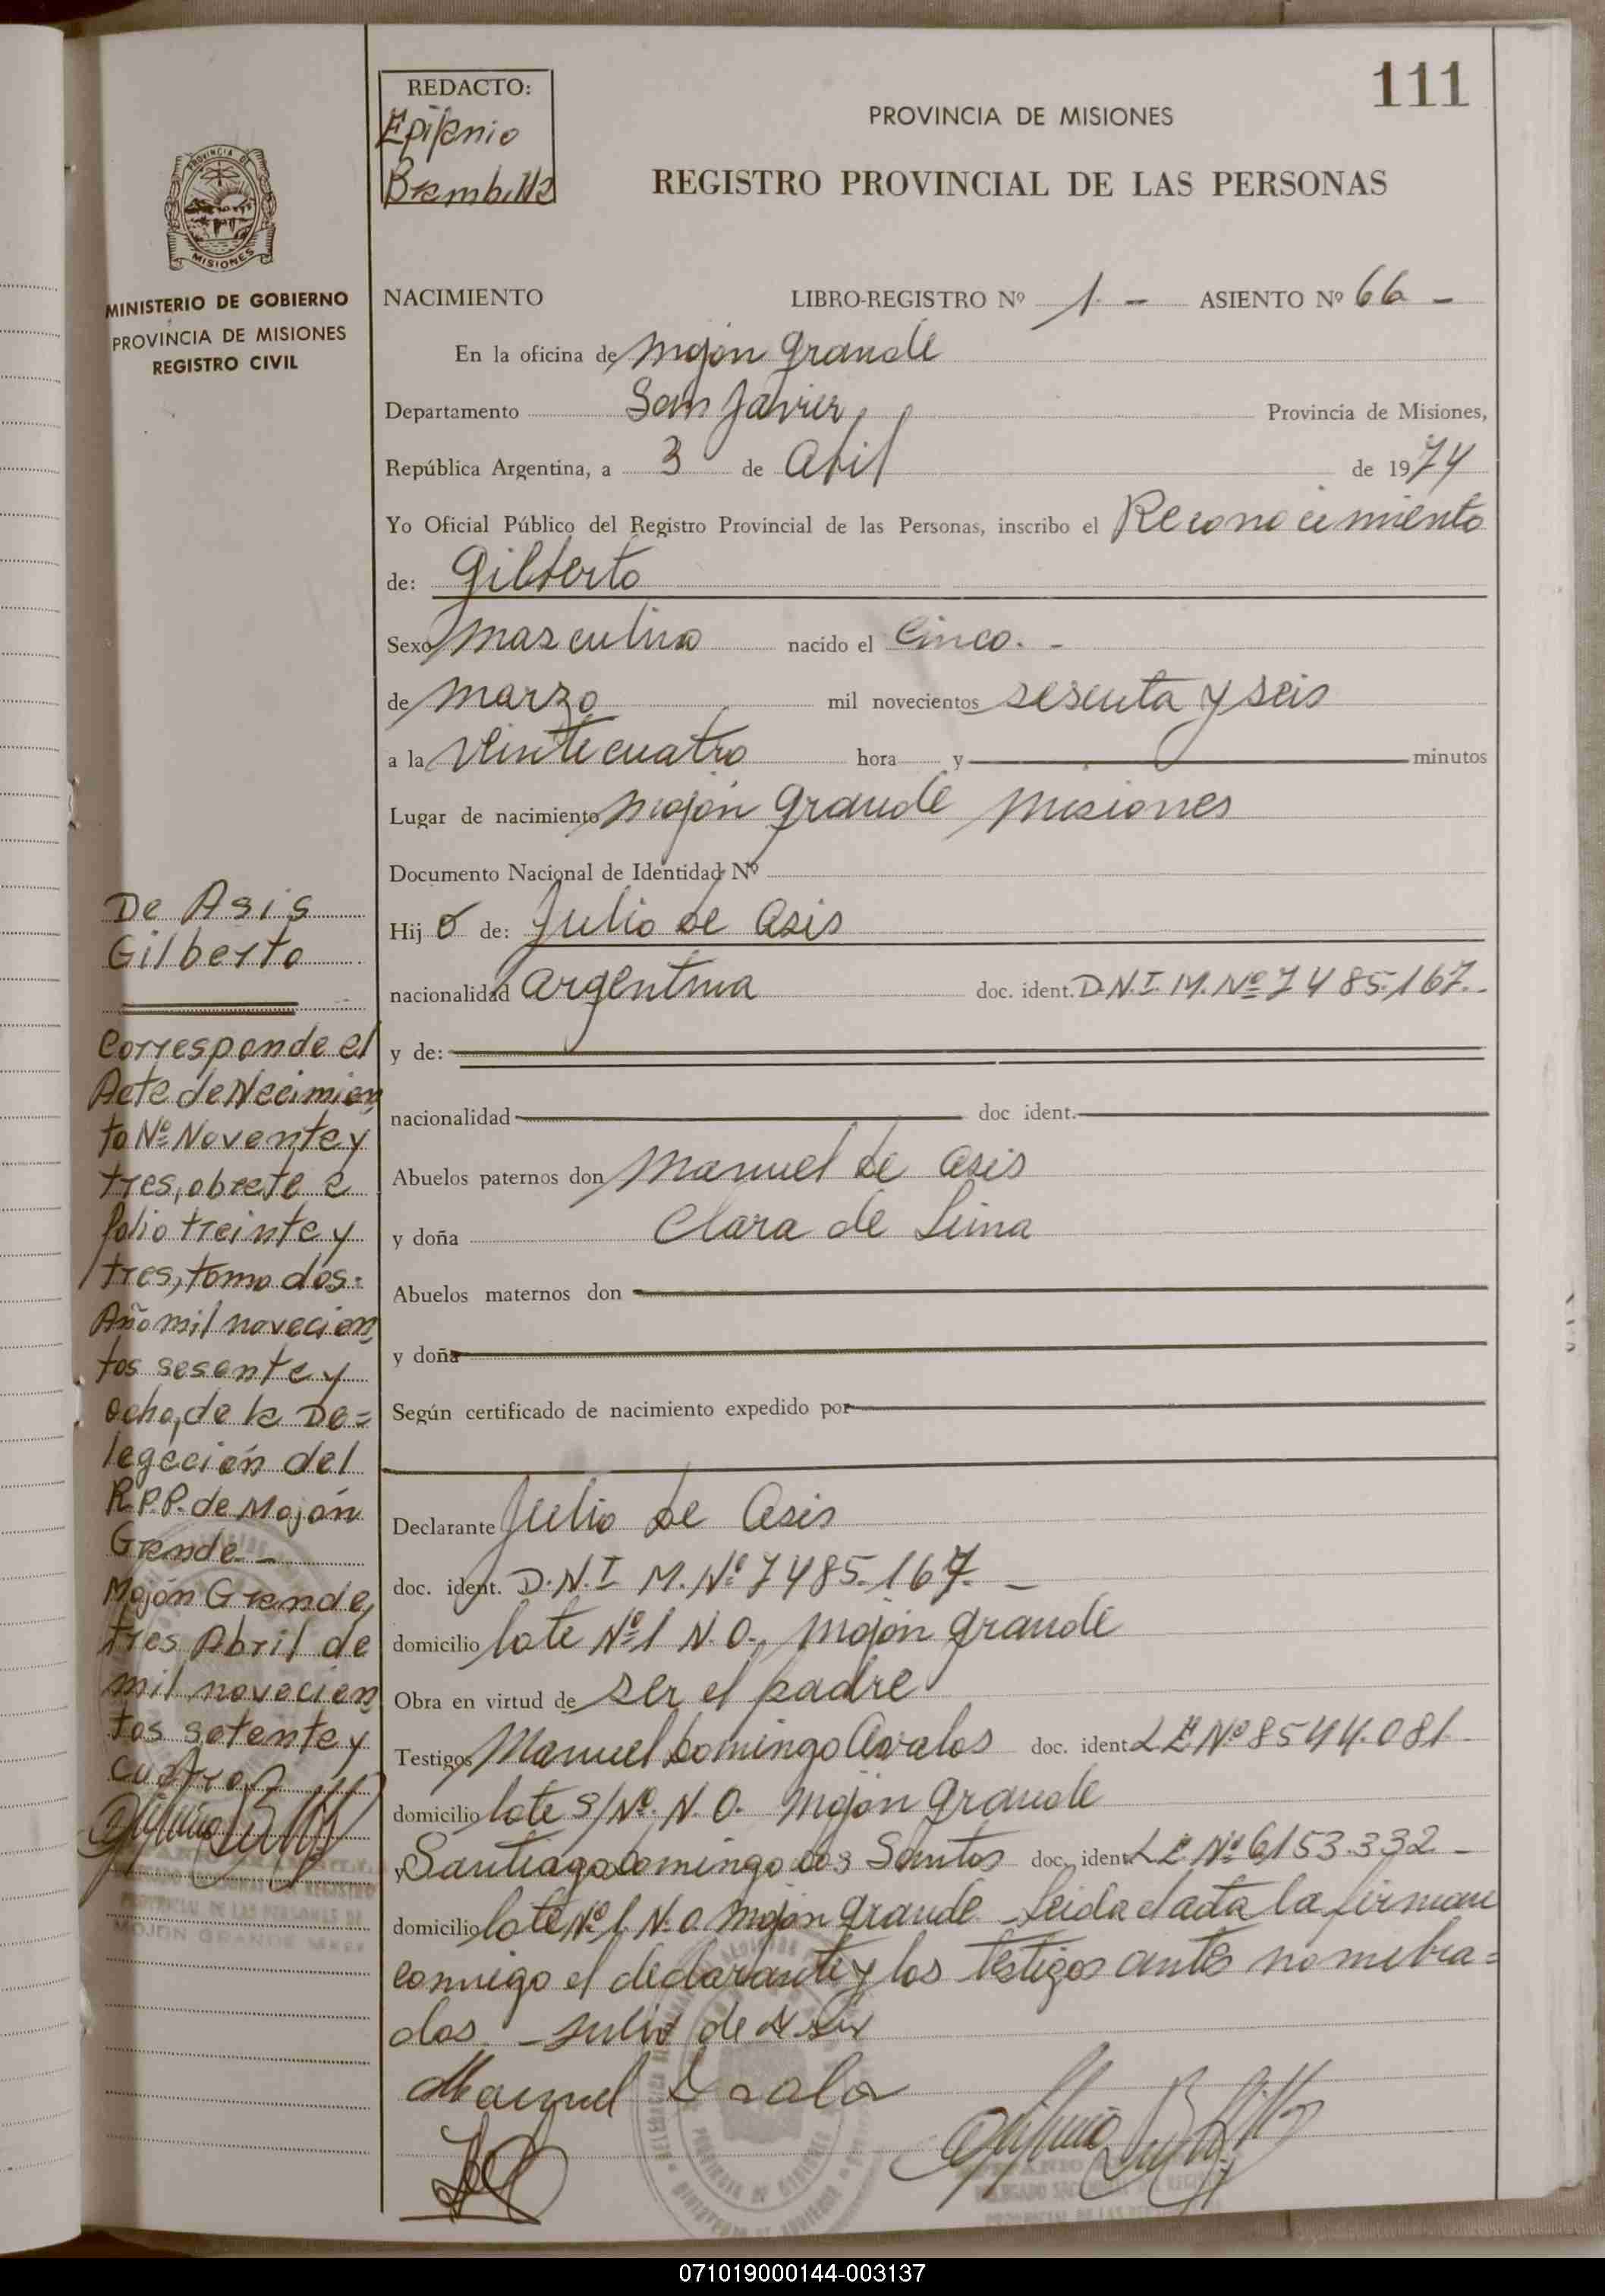 111
REDACTO:
Epifanio
Brambilla
PROVINCIA DE MISIONES
REGISTRO PROVINCIAL DE LAS PERSONAS
PROVINCIA DE
MISIONES
MINISTERIO DE GOBIERNO
PROVINCIA DE MISIONES
REGISTRO CIVIL
De Asis
Gilberto
Corresponde el
Acta de Nacimien
to Nº Noventa y
tres, obrate a
folio treinta y
tres, tomo dos.
Año mil novecien
tos sesenta y
ocho, de la De=
legación del
R.P.P. de Mojón
Grande. -
Mojón Grande,
tres Abril de
mil novecien
tos setenta y
cuatro.
PROVINCIAL DE LAS PERSONAS DE
MOJON GRANDE
NACIMIENTO LIBRO-REGISTRO Nº 1. - ASIENTO Nº 66 -
En la oficina de Mojón Grande
Departamento San Javier, Provincia de Misiones,
República Argentina, a 3 de Abril de 1974
Yo Oficial Público del Registro Provincial de las Personas, inscribo el Reconocimiento
de: Gilberto
Sexo Masculino nacido el Cinco. -
de Marzo mil novecientos sesenta y seis
a la Veinticuatro hora y minutos
Lugar de nacimiento Mojón Grande Misiones
Documento Nacional de Identidad Nº
Hij o de: Julio de Asis
nacionalidad Argentina doc. ident. D.N.I. M. Nº 7485.167.-
y de:
nacionalidad doc ident.
Abuelos paternos don Manuel de Asis
y doña Clara de Lima
Abuelos maternos don
y doña
Según certificado de nacimiento expedido por
Declarante Julio de Asis
doc. ident. D.N.I M. Nº 7485.167. -
domicilio lote Nº 1 N.O., Mojón Grande
Obra en virtud de ser el padre
Testigos Manuel Domingo Avalos doc. ident. L.E Nº 8544.081.-
domicilio lote S/Nº. N.O. Mojón Grande
y Santiago Domingo Dos Santos doc. ident. L.E Nº 6153.332 -
domicilio lote Nº 1. N.O Mojón Grande Leida el acta la firman
conmigo el declarante y los testigos antes nombra=
dos. - Julio de Asis
Manuel D avalos
071019000144-003137